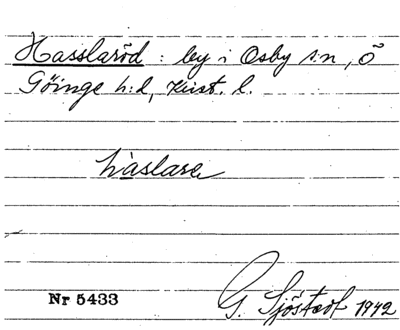 Hasslaröd : by i Osby s:n, Ö
Göinge h:d, Krist. l.
haslare
Nr 5433
G. Sjöstedt 1942